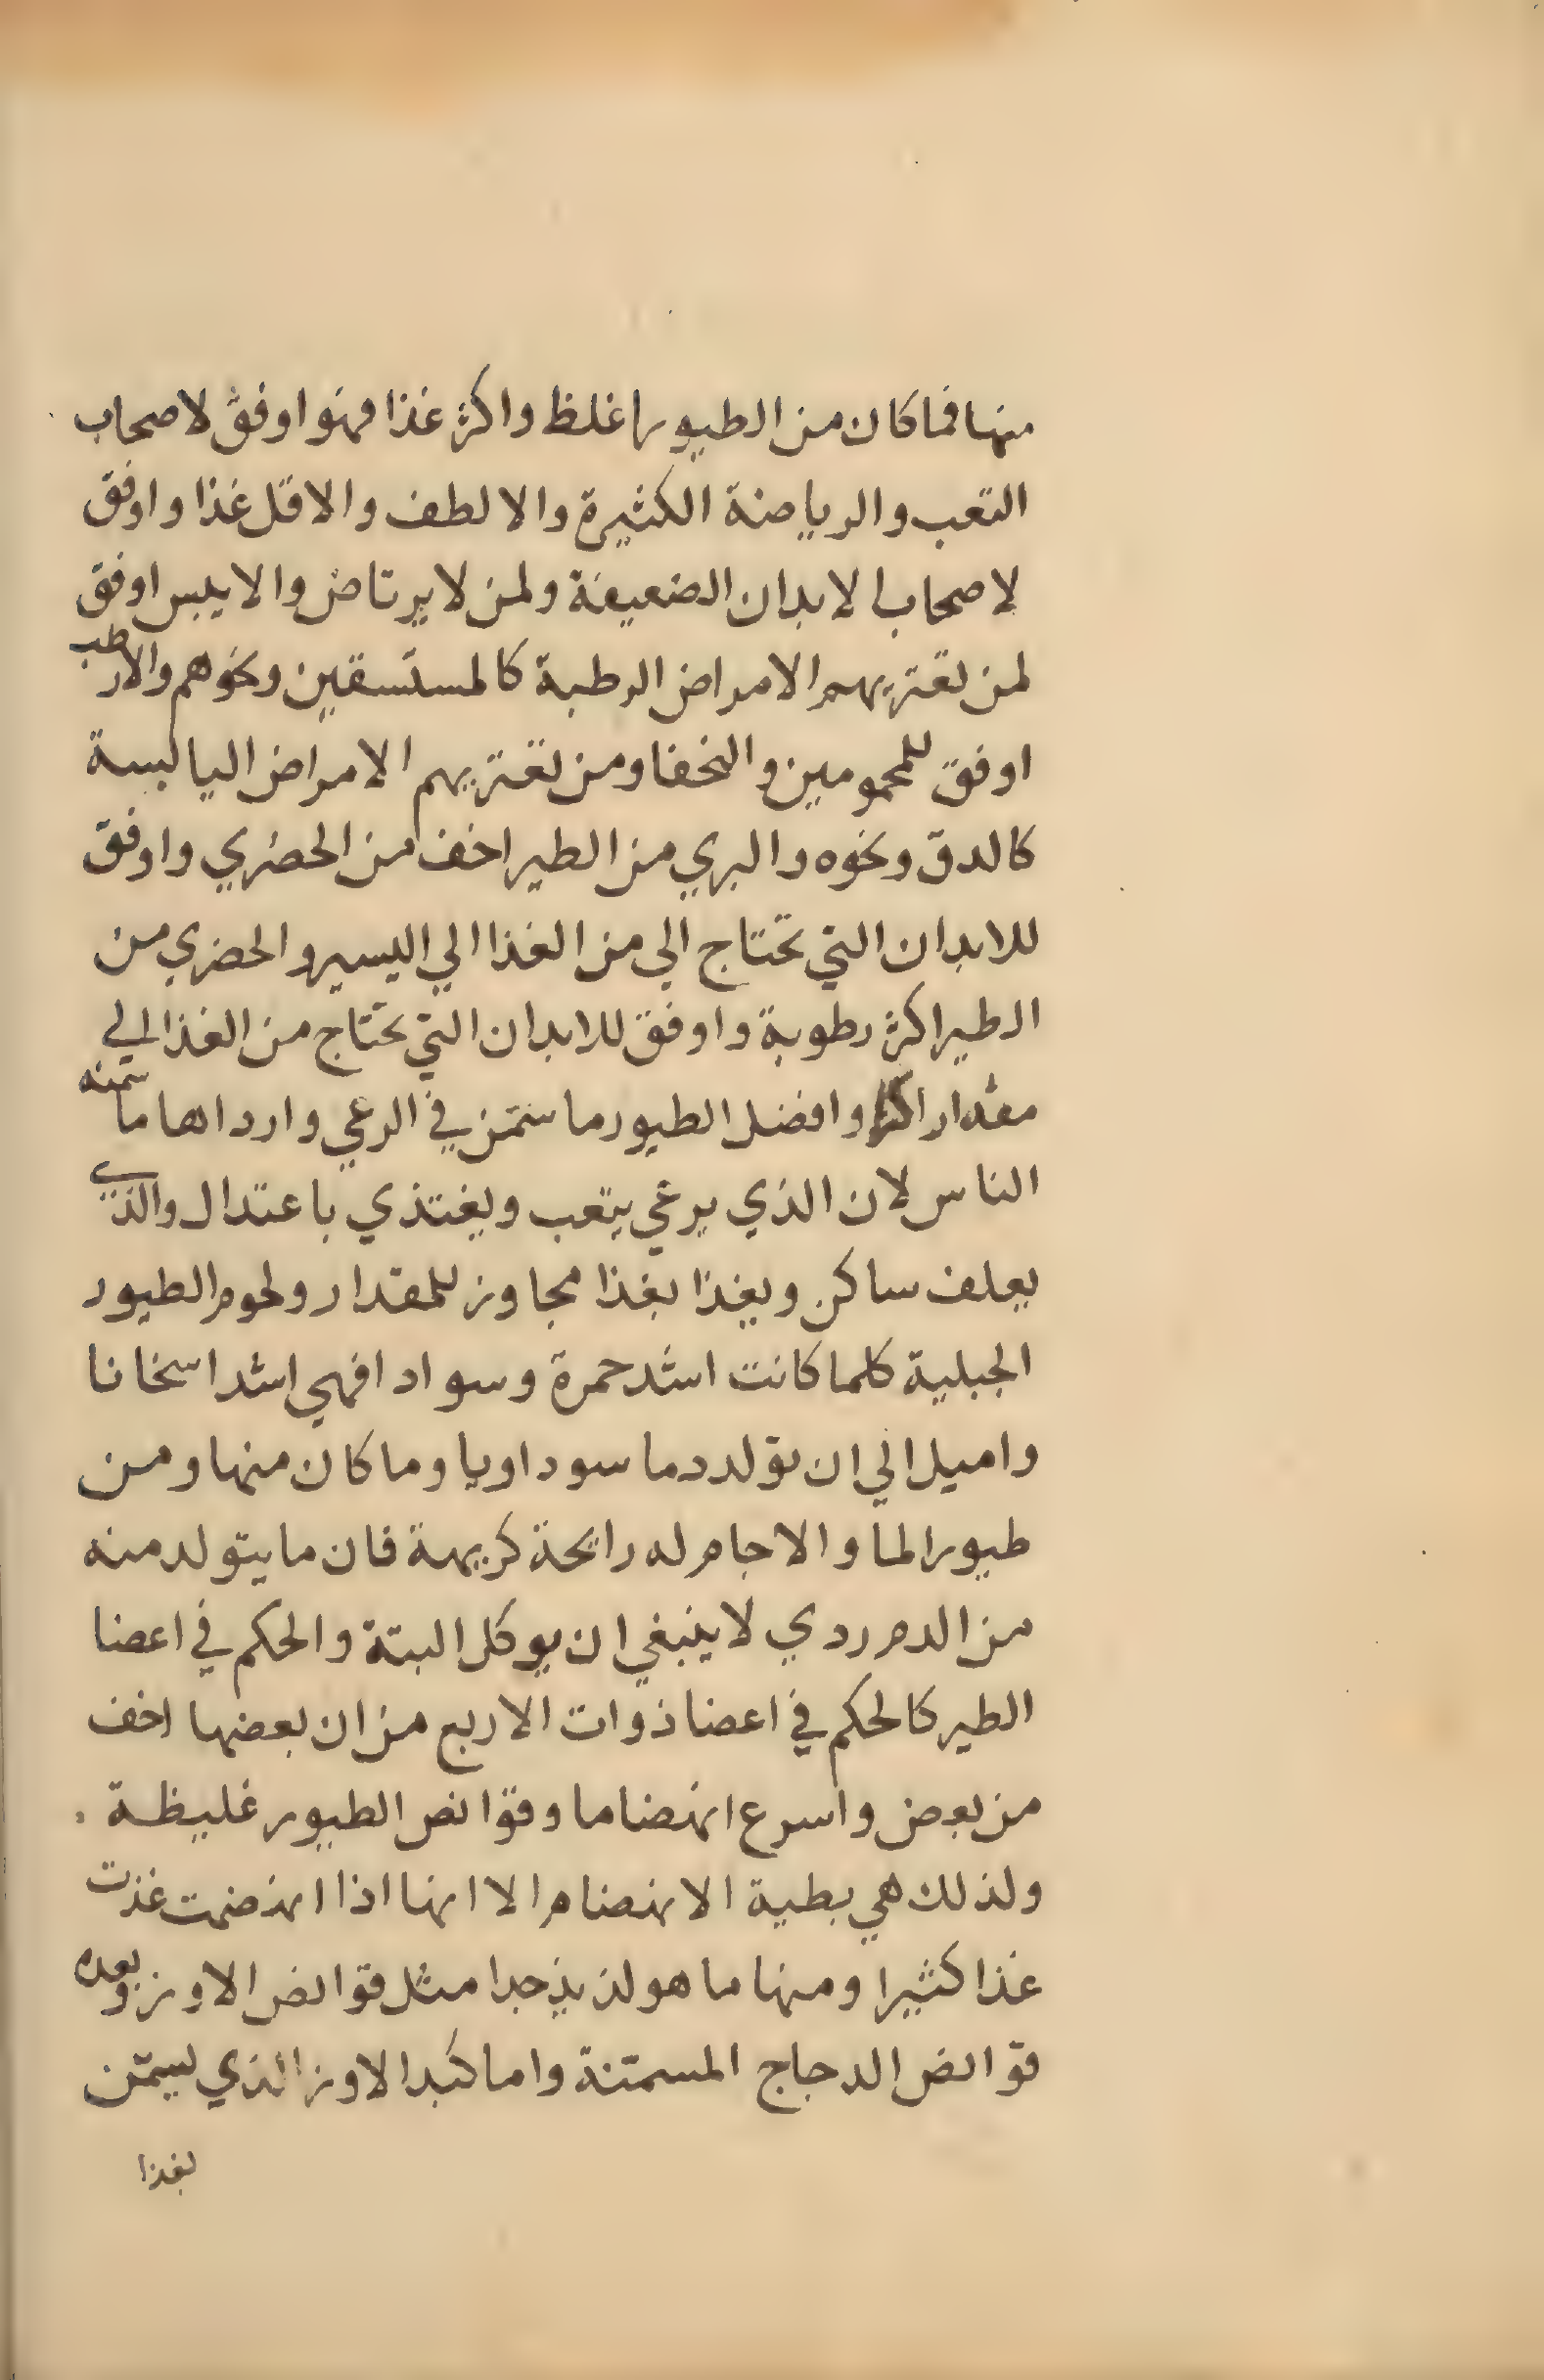 منها فما كان من الطيور اغلظ واكثر غذا فهو اوفق لاصحاب
التعب والرياضة الكثيرة والالطف والاقل غذا واوفق
لاصحاب الابدان الضعيفة ولمن لا يرتاض والايبس اوفق
لمن تعتريهم الامراض الرطبة كالمستسقين ونحوهم والارطب
اوفق للمحمومين والنحفا ومن تعتريهم الامراض اليابسة
كالدق ونحوه والبري من الطير اخف من الحضري واوفق
للابدان التي تحتاج الي من الغذا الي اليسير والحضري من
الطير اكثر رطوبة واوفق للابدان التي تحتاج من الغذا الي
مقدار اكثر وافضل الطيور ما سمن في الرعي وارداها ما سمنه
الناس لان الذي يرعي يتعب ويغتذي باعتدال والذي
يعلف ساكن ويغذا بغذا مجاوز للمقدار ولحوم الطيور
الجبلية كلما كانت اشد حمرة وسوادا فهي اشد اسخانا
واميل الي ان تولد دما سوداويا وما كان منها ومن
طيور الما والاجام له رايحة كريهة فان ما يتولد منه
من الدم ردي لا ينبغي ان يوكل البتة والحكم في اعضا
الطير كالحكم في اعضا ذوات الاربع من ان بعضها اخف
من بعض واسرع انهضاما وقوانص الطيور غليظة
ولذلك هي بطية الانهضام الا انها اذا انهضمت غذت
غذا كثيرا ومنها ما هو لذيذ جدا مثل قوانص الاوز وبعده
قوانص الدجاج المسمنة واما كبد الاوز الذي يسمن
بغذا